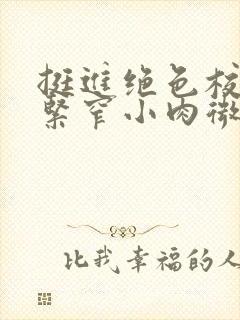 挺进绝色校
紧窄小肉微
比我幸福的人